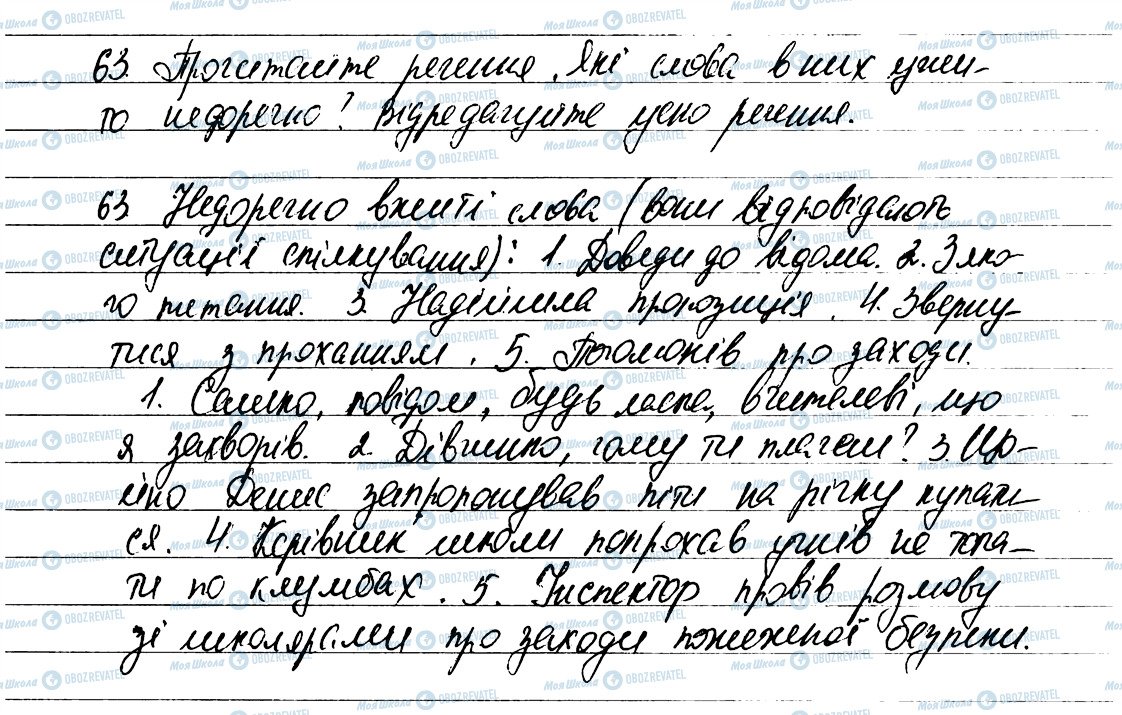 63. Прочитайте речення. Які слова в них ужи-
то недоречно? Відредагуйте усно речення.
63 Недоречно вжиті слова (вони відповідають
ситуації спілкування): 1. Доведи до відома. 2. З яко-
го питання. 3. Надійшла пропозиція. 4. Зверну-
тися з проханням. 5. про заходи.
1. Сашко, повідом, будь ласка, вчителеві, що
я захворів. 2. Дівчинко, чому ти плачеш? 3. Що-
йно Денис запропонував піти на річку купати-
ся. 4. Керівник школи попрохав учнів не топта-
ти по клумбах. 5. Інспектор провів розмову
зі школярами про заходи пожежної безпеки.